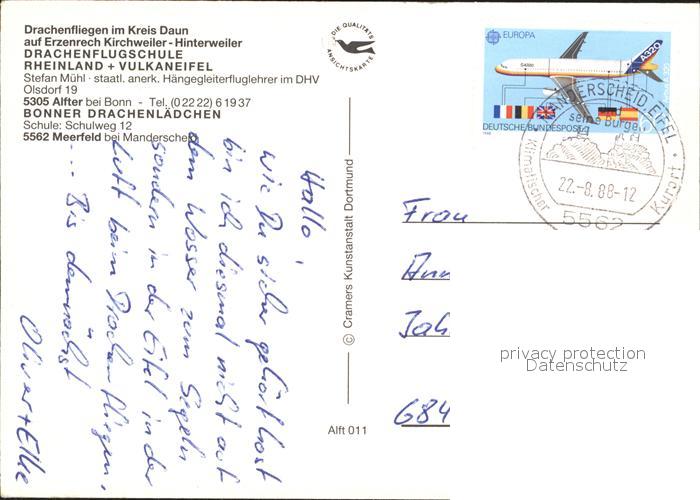 Drachenfliegen im Kreis Daun
auf Erzenrech Kirchweiler - Hinterweiler
DRACHENFLUGSCHULE
RHEINLAND + VULKANEIFEL
Stefan Mühl · staatl. anerk. Hängegleiterfluglehrer im DHV
Olsdorf 19
5305 Alfter bei Bonn - Tel. (0 22 22) 6 19 37
BONNER DRACHENLÄDCHEN
Schule: Schulweg 12
5562 Meerfeld bei Manderscheid
DIE QUALITÄTS
ANSICHTSKARTE
EUROPA
A320
DEUTSCHE BUNDESPOST
MANDERSCHEID, EIFEL
seine Burgen
22.-8.88-12
5562
Klimatischer Kurort
Hallo,
wie Du sicher gehört hast
bin ich diesmal nicht auf
dem Wasser zum Segeln
sondern in der Eifel in der
Luft beim Drachenfliegen,
... Bis demnächst
Oliver + Elke
© Cramers Kunstanstalt Dortmund
Alft 011
Frau
684
privacy protection
Datenschutz